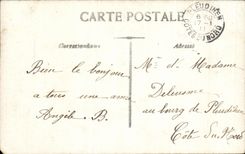 CARTE POSTALE
Correspondance
Adresse
Bien le bonjour
à tous une amie
Angèle B.
Mr et Madame
au bourg de Pleudihen
Côte du Nord
PLEUDIHEN
CÔTES-DU-NORD